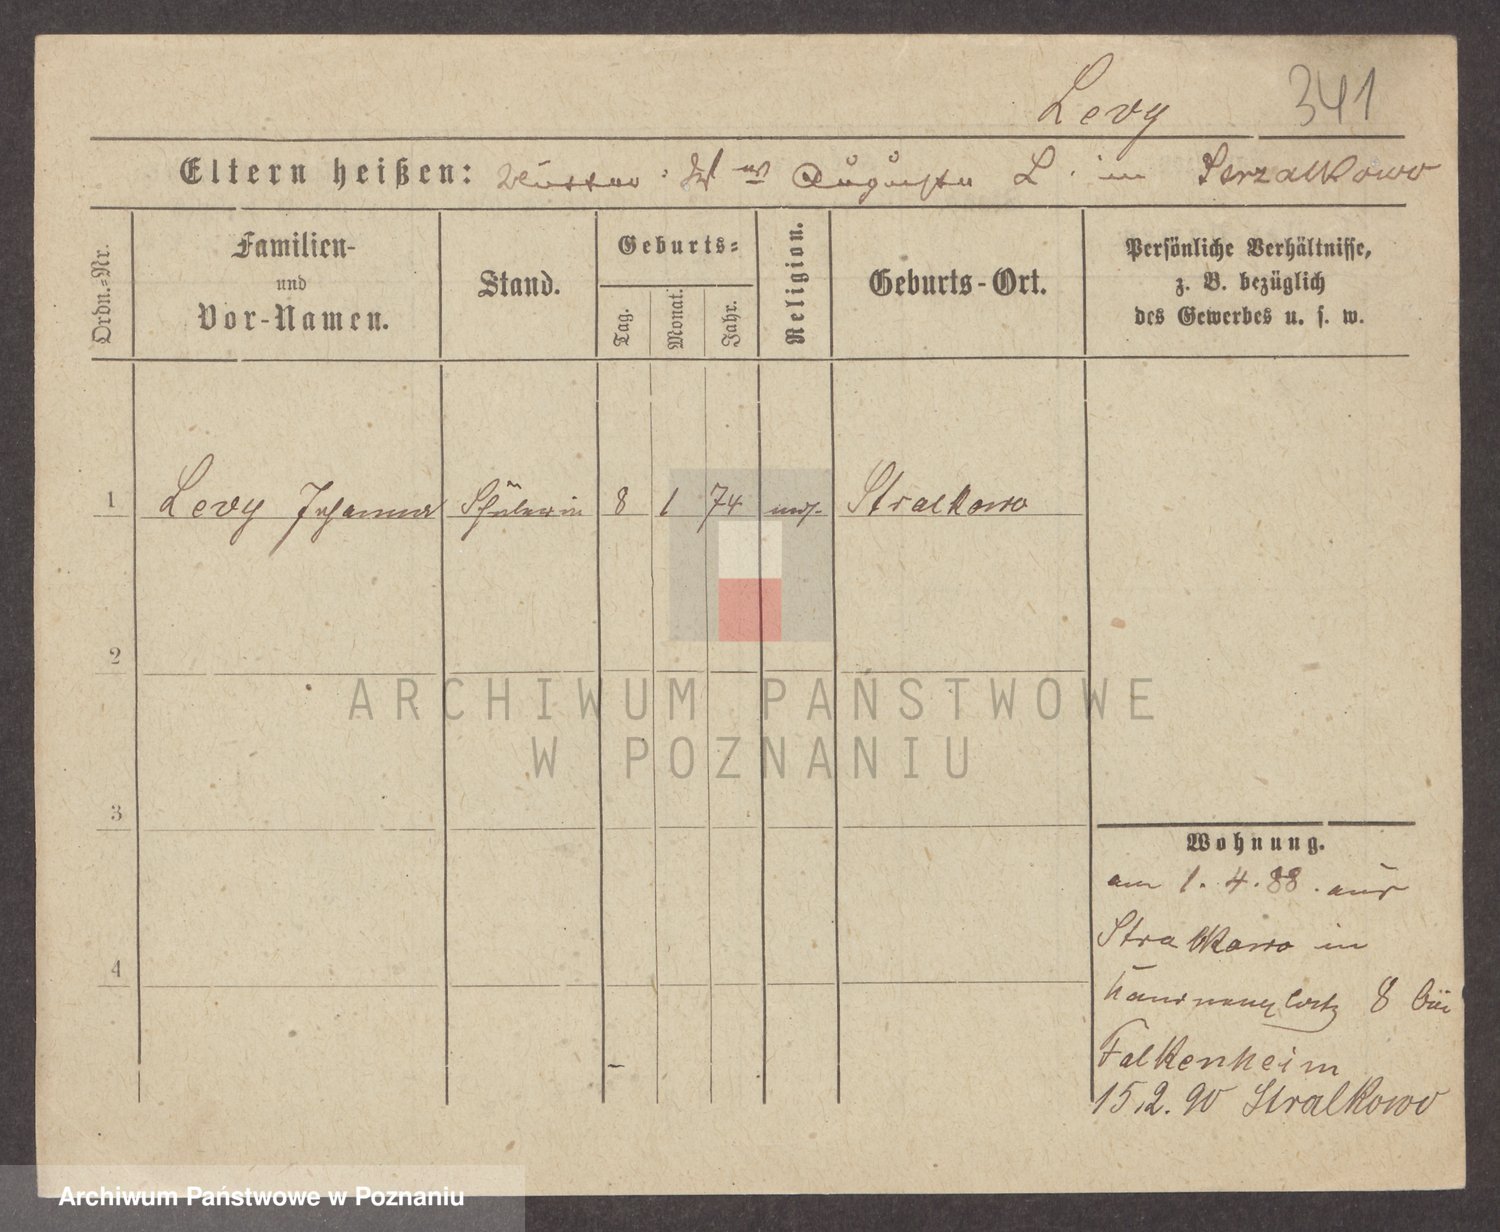 Levy 341
Eltern heißen: Mutter: Auguste L. in Strzalkowo
Ordn.=Nr.
Familien-
und
Vor-Namen.
Stand.
Geburts=
Tag.
Monat.
Jahr.
Religion.
Geburts-Ort.
Persönliche Verhältnisse,
z. B. bezüglich
des Gewerbes u. s. w.
1 Levy Johanna Schülerin 8 1 74 mos. Stralkowo
2
3
4
ARCHIWUM PAŃSTWOWE
W POZNANIU
Wohnung.
am 1. 4. 88. aus
Stralkowo in
8 bei
Falkenheim
15.2.90 Stralkowo
Archiwum Państwowe w Poznaniu